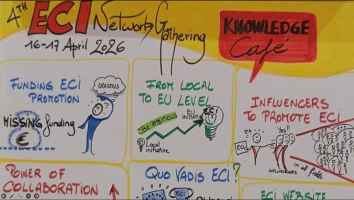 4TH ECI Network Gathering
16-17 April 2026
KNOWLEDGE
Café
FUNDING ECI
PROMOTION
ERASMUS
MISSING funding
FROM LOCAL
TO EU LEVEL
BE AMBITIOUS
EU
INITIATIVE
ECI
LOCAL
INITIATIVE
INFLUENCERS
TO PROMOTE ECI
ECI
YES!
INFLUENCERS
in all fields
POWER OF
COLLABORATION
QUO VADIS ECI?
ECI WEBSITE